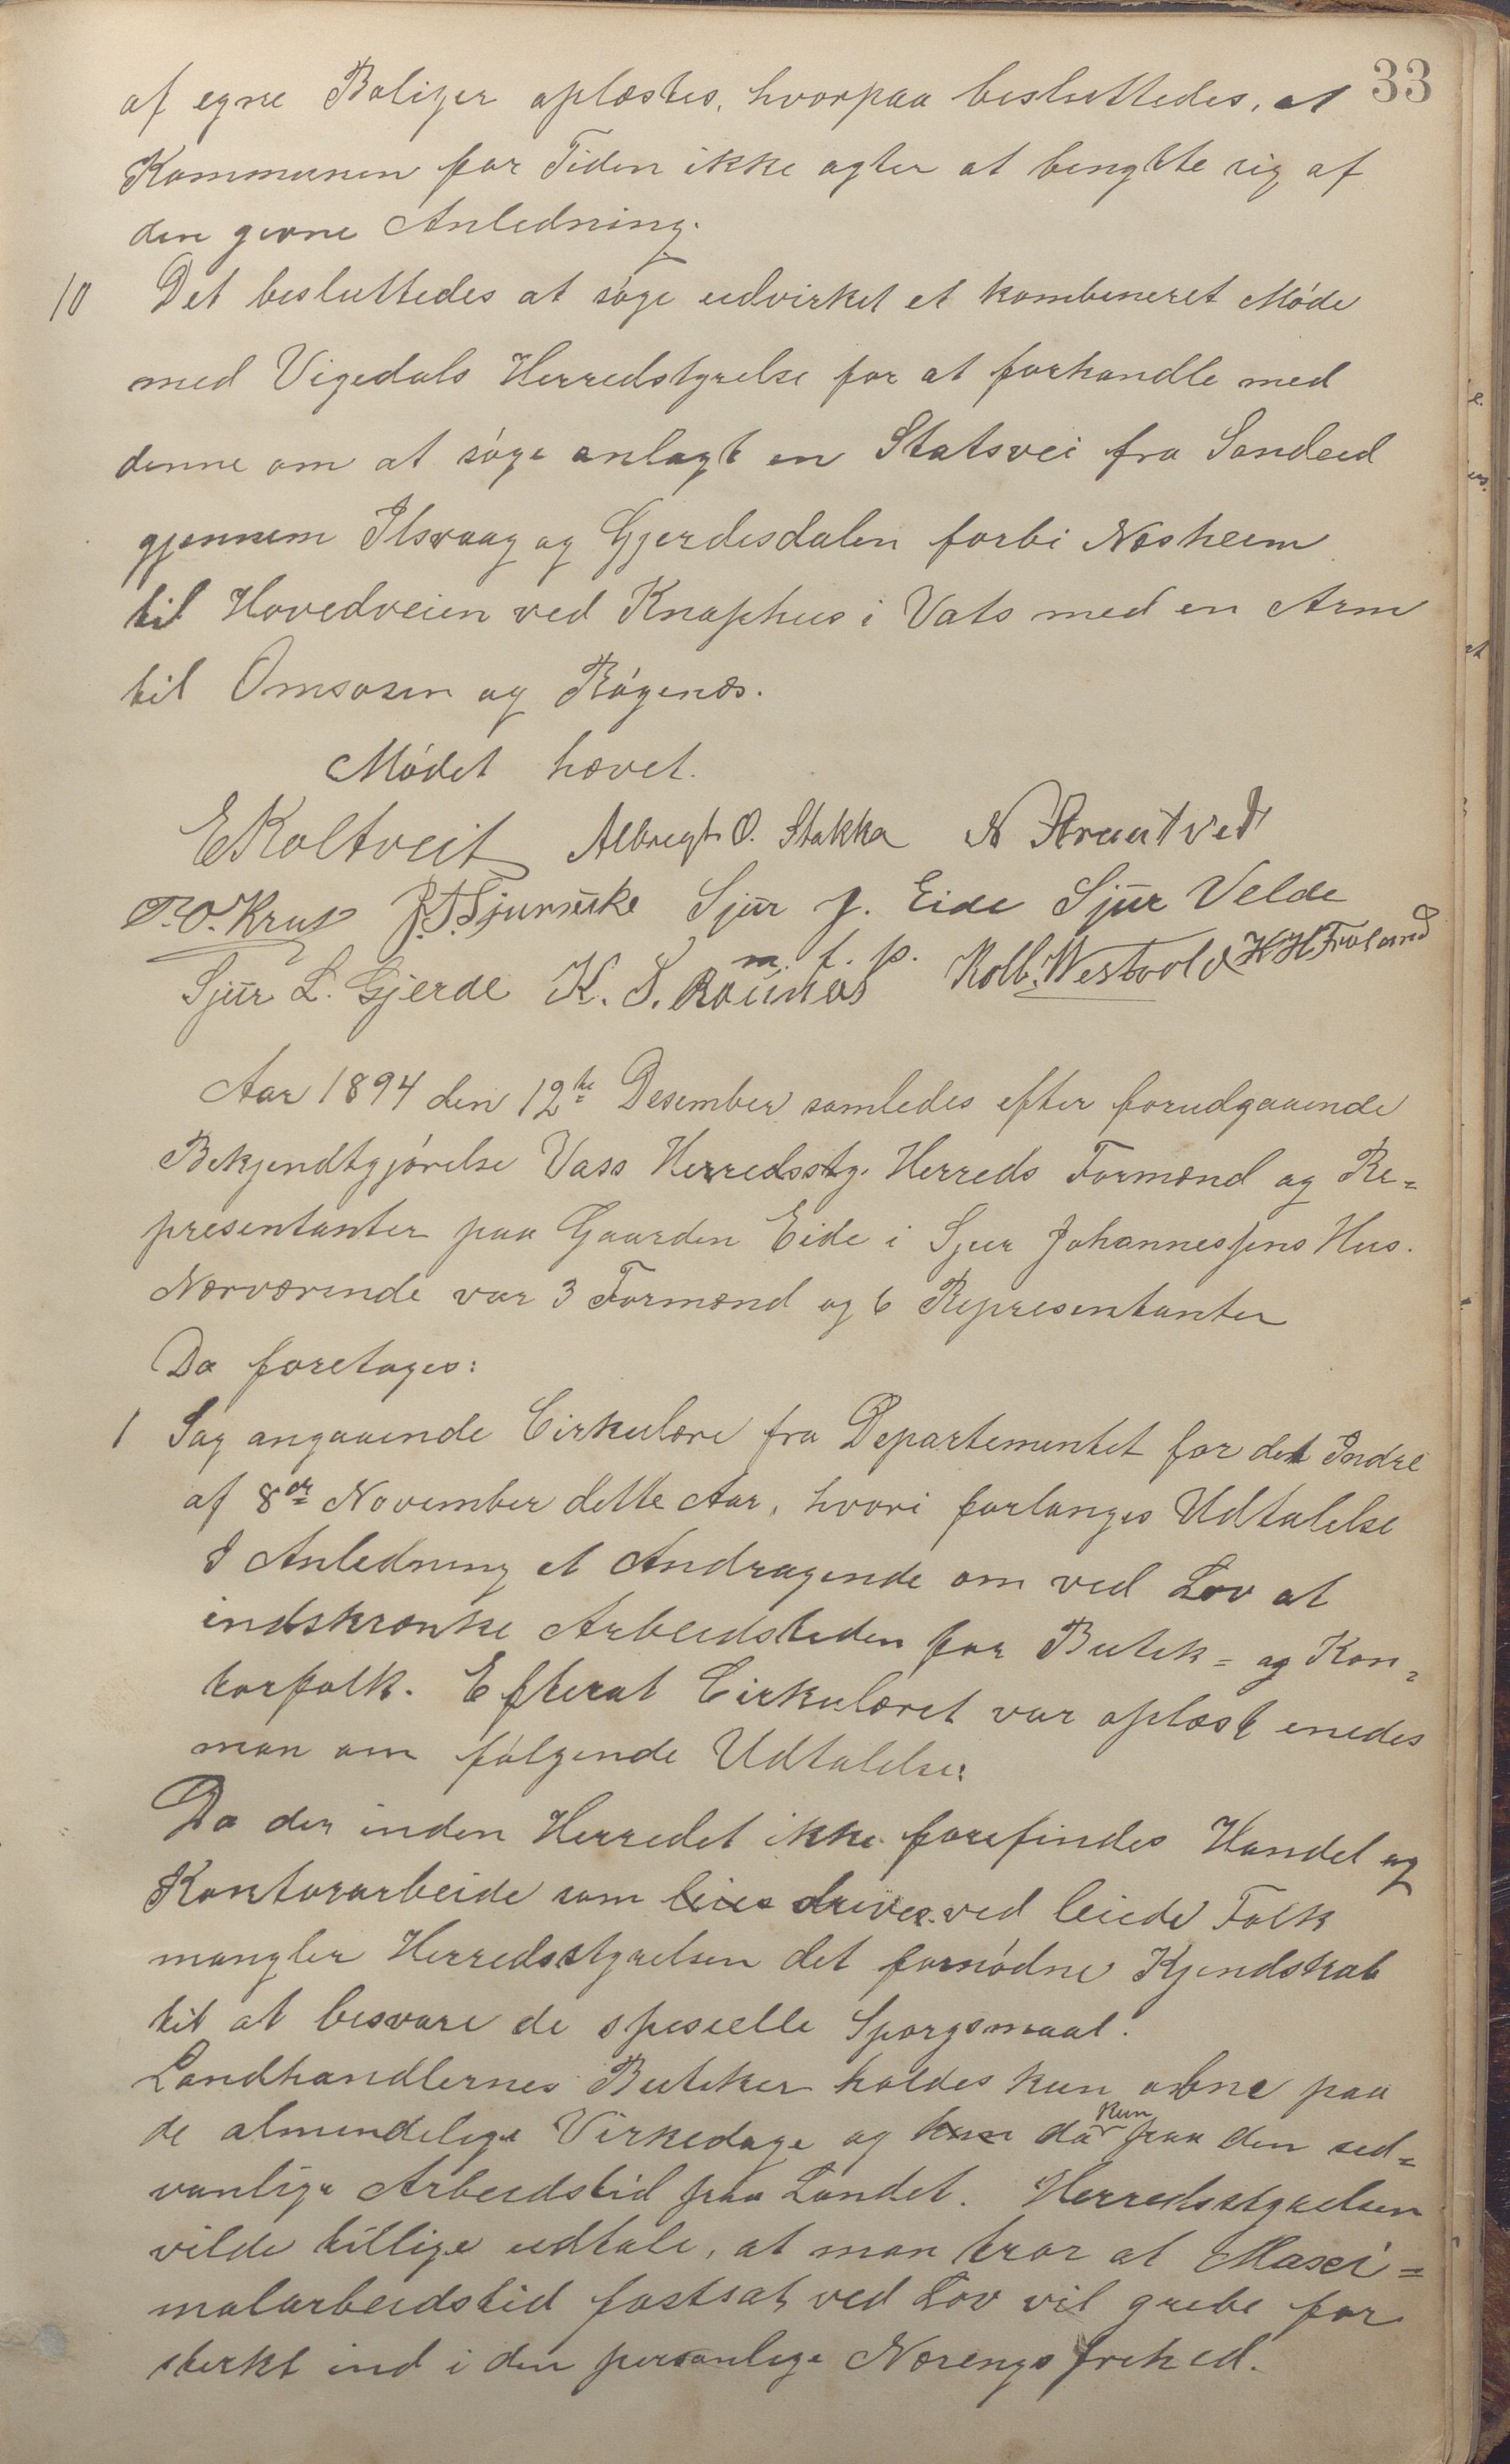 33
af egne Boliger oplæstes, hvorpaa besluttedes, at
Kommunen for Tiden ikke agter at bengtte sig af
den givne Anledning.
10 Det besluttedes at søge udvirket et kombineret Møde
med Vigedals Herredstyrelse for at forhandle med
denne om at søge anlagt en Statsvei fra Sandeid
gjennem Ilsvaag og Gjerdesdalen forbi Nosheim
til Hovedveien ved Knaphus i Vats med en Arm
til Omsosen og Røgenæs.
Mødet hævet.
E Koltveit Albregt O. Stakka N Hrautvedt
T. O. Krus Sjur J. Eide Sjur Velde
Sjur L. Gjerde K. S. Raunæs m. f. p. Kolb. Westvold H H Frøland
Aar 1894 den 12te Desember samledes efter forudgaaende
Bekjendtgjørelse Vass Herredsstyr. Herreds Formænd og Re=
presentanter paa Gaarden Eide i Sjur Johannessens Hus.
Nærværende var 3 Formænd og 6 Representanter
Da foretages:
1 Sag angaaende Cirkulære fra Departementet for det Indre
af 8de November dette Aar, hvori forlanges Udtalelse
I Anledning et Andragende om ved Lov at
indskrænke Arbeidstiden for Butik= og Kon=
torfolk. Efterat Cirkulæret var oplæst enedes
man om følgende Udtalelse:
Da der inden Herredet ikke forefindes Handel og
Kontorarbeide som leies drives ved leiede Folk
mangler Herredsstyrelsen det fornødne Kjendskab
til at besvare de spesielle Sporgsmaal.
Landhandlernes Butiker holdes kun abne paa
de almindelige Virkedage og kun da kun paa den sed=
vanlige Arbeidstid paa Landet. Herredsstyrelsen
vilde tillige udtale, at man tror at Maxi=
malarbeidstid fastsat ved Lov vil gribe for
sterkt ind i den personlige Nærings frihed.